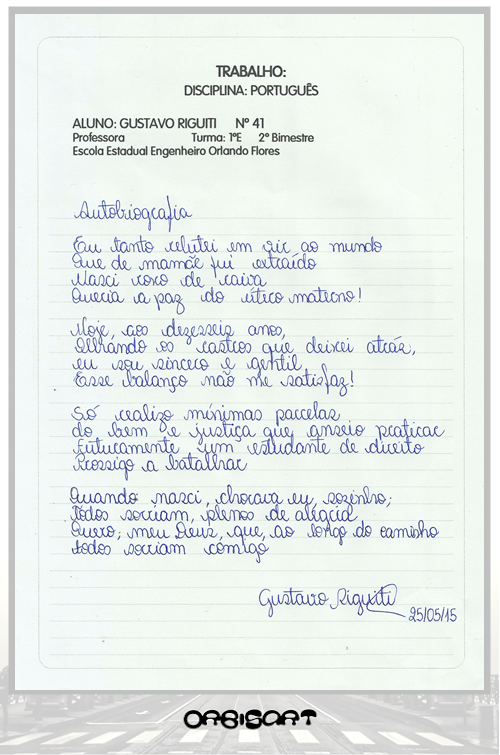 TRABALHO:
DISCIPLINA: PORTUGUÊS
ALUNO: GUSTAVO RIGUITI Nº 41
Professora Turma: 1ºE 2º Bimestre
Escola Estadual Engenheiro Orlando Flores
Autobiografia
Eu tanto relutei em vir ao mundo
Que de mamãe fui extraído
Nasci roxo de raiva
Queria a paz do útero materno!
Hoje, aos dezesseis anos,
Olhando os rastros que deixei atrás,
eu sou sincero e gentil
Esse balanço não me satisfaz!
Só realizo mínimas parcelas
do bem e justiça que anseio praticar
Futuramente um estudante de direito
Prossigo a batalhar
Quando nasci, chorava eu, sozinho;
Todos sorriam, plenos de alegria
Quero, meu Deus, que, ao longo do caminho
todos sorriam comigo
Gustavo Riguiti
25/05/15
ORBISART